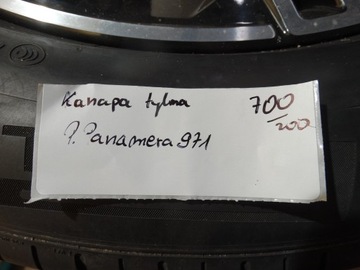 Kanapa tylna 700/200
P. Panamera 971